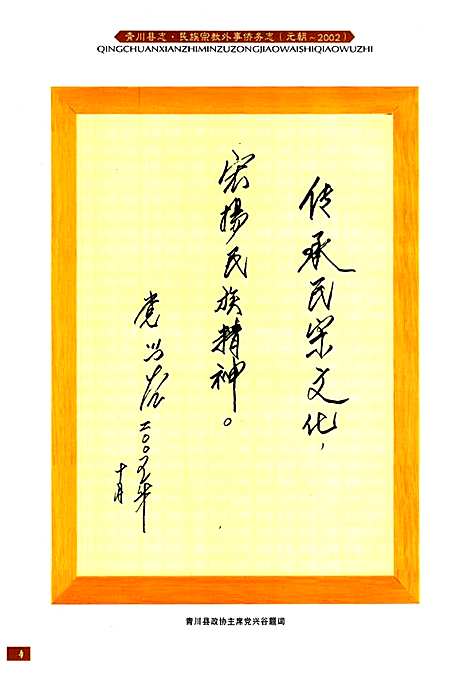 青川县志·民族宗教外事侨务志(元朝~2002)
QINGCHUANXIANZHIMINZUZONGJIAOWAISHIQIAOWUZHI
传承民宗文化，
宏扬民族精神。
党兴谷
二〇〇五年
十月
青川县政协主席党兴谷题词
4